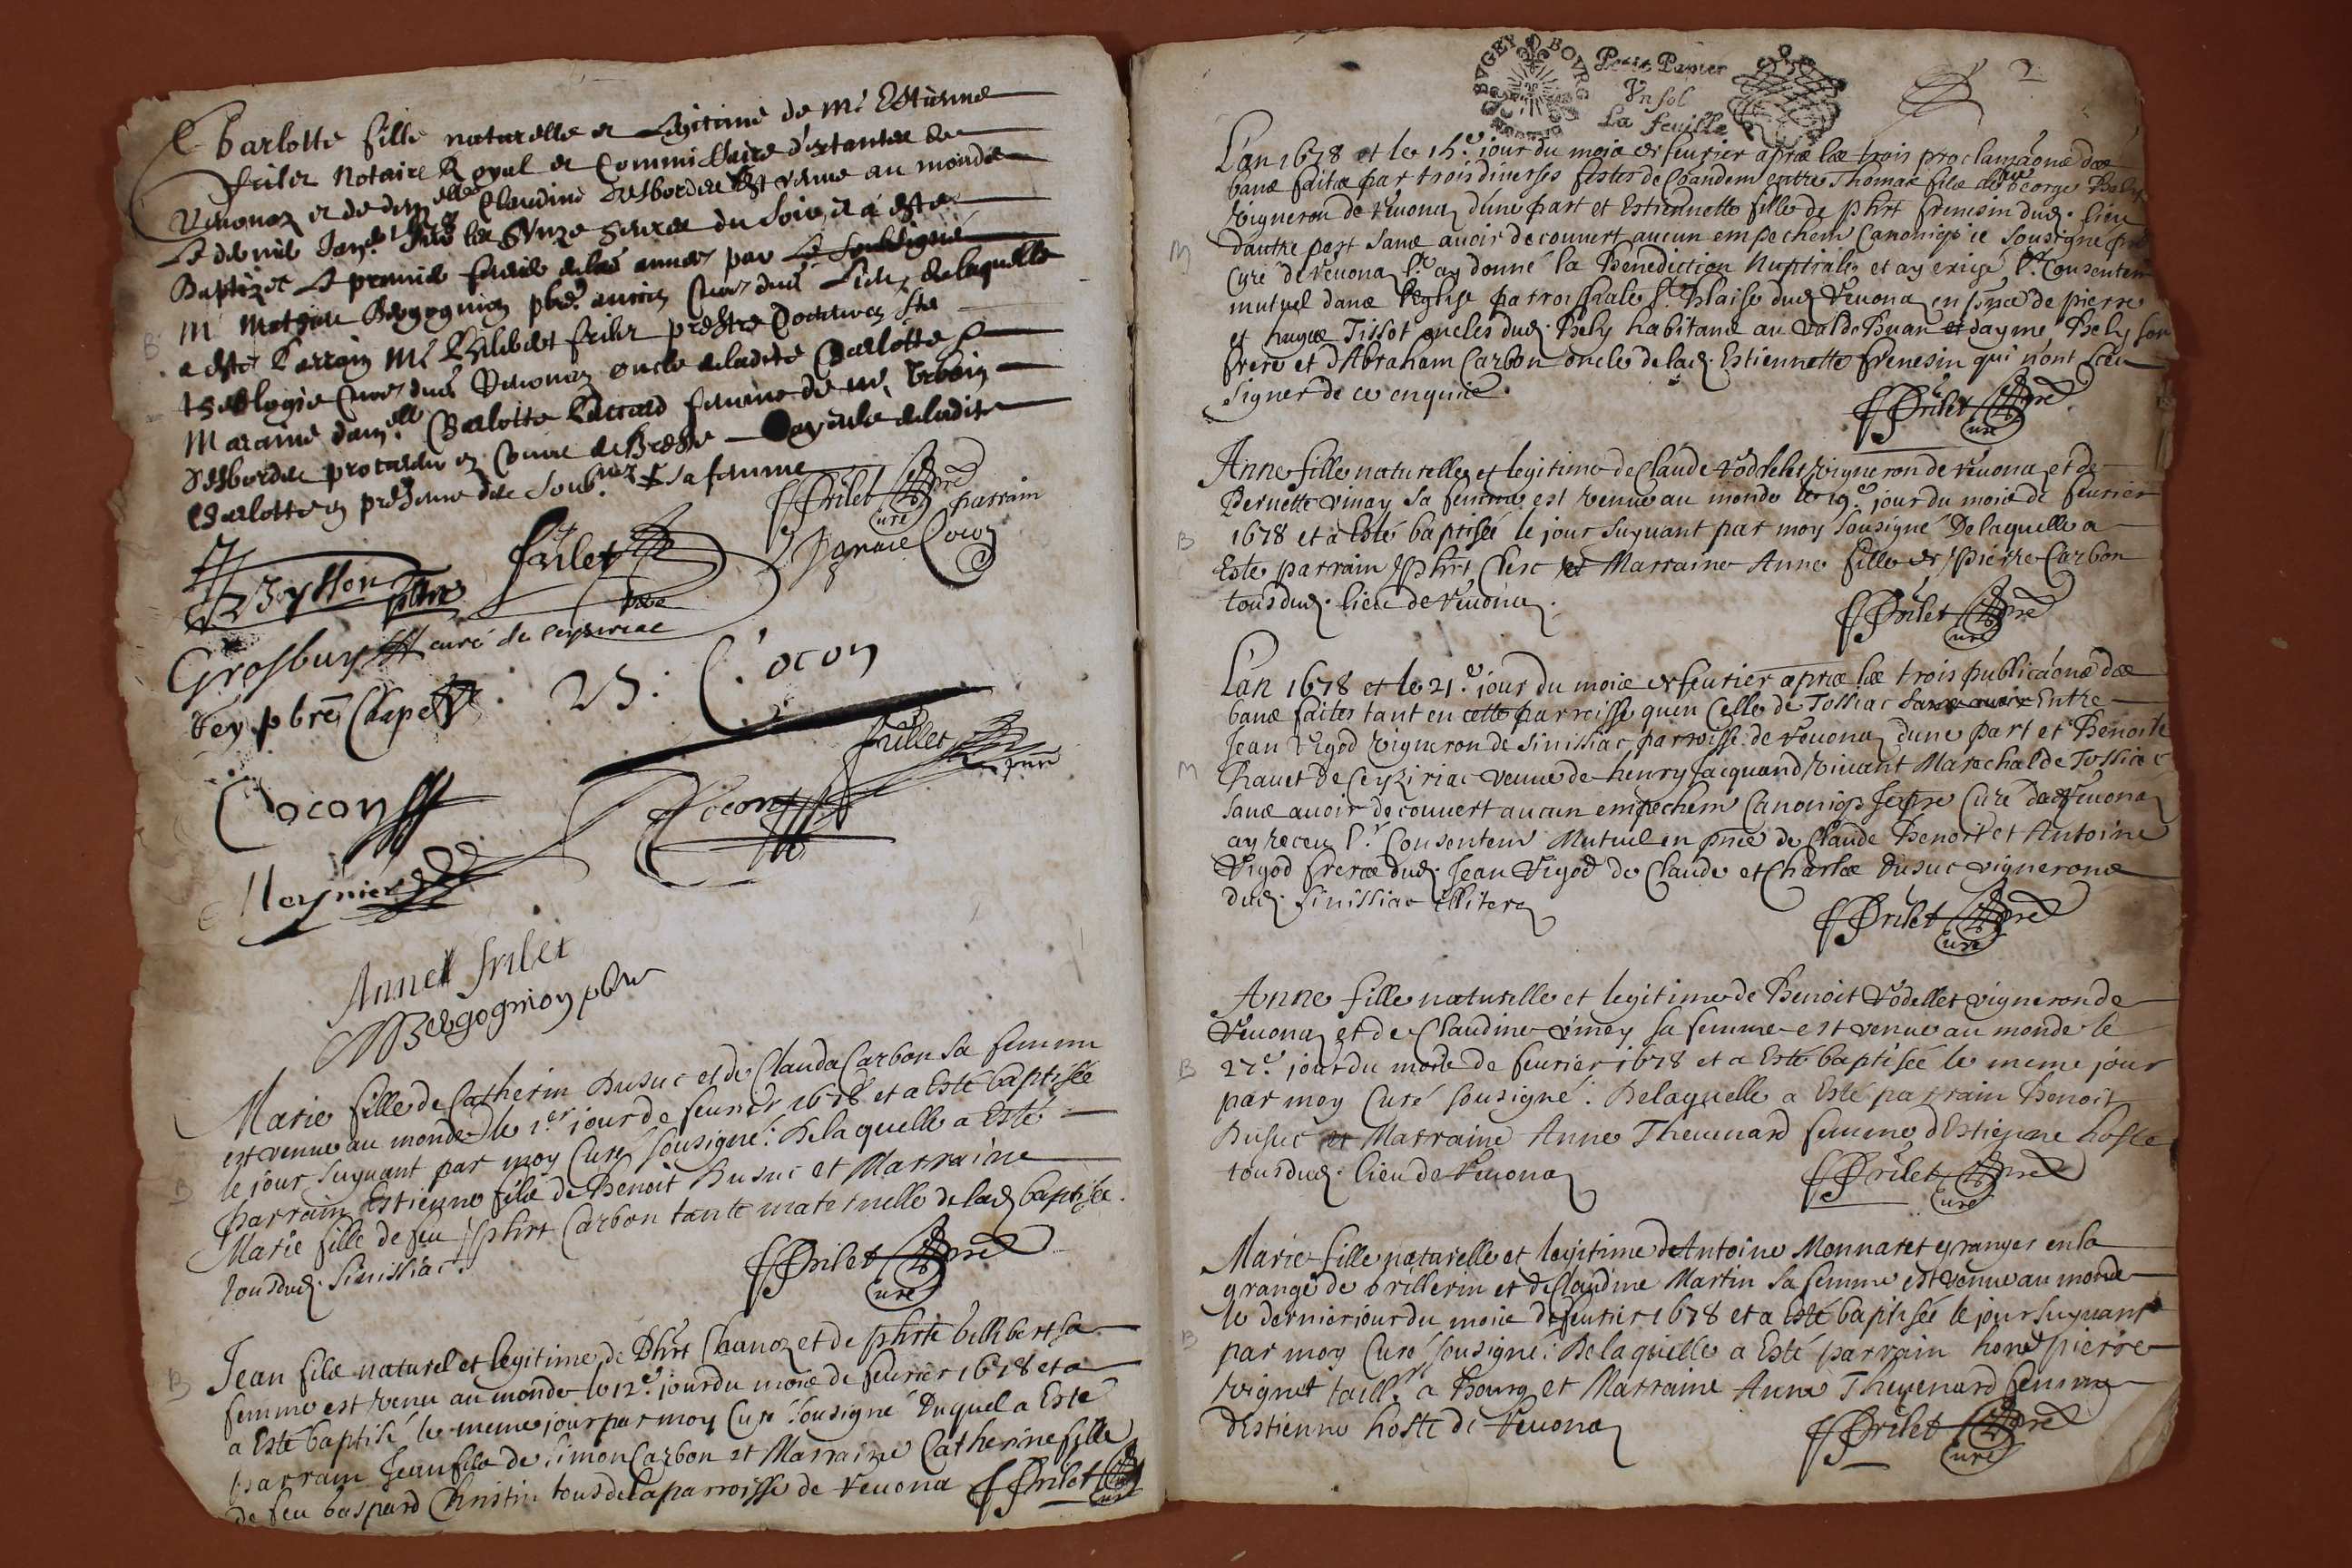 Charlotte fille naturelle et Legitime de Mr Estienne
frilet Notaire Royal et Commissaire d'extantes de
Veuonaz et de damelle Claudine Desbordes est venue au monde
Le dernier Janer les Unze heures du Soir et a este
Baptizee Le premier feurier par Le soubsigné
Mr Bergognion pbre ancien Curé dud Lieu, de laquelle
a esté Parrain Mr Philibert frilet prestre Docteur en Ste
theologie Curé dud Veuonaz oncle de ladite Charlotte
Maraine damelle Charlotte femme de Mr Urbain
Desbordes procureur en Cour de Bresse ayeule de ladite
Charlotte en presence des soubnez et sa femme
B
PhFrilet pre
Curé parrain
ptre
frilet
Ignace Cocon
Grosbuys curé de ceyseriac
Fey pbre Chape
Cocon
frillet
Cocon
Cocon
Meynier
Anne frilet
MBergognion pbre
Marie fille de Catherin Dusuc et de Clauda Carbon sa femme
est venue au monde le 1er jour de feurier 1678 et a Esté baptisée
le jour suyuant par moy Curé sousigné: De laquelle a Esté
B
parrain Estienne fils de Benoit Dusuc et Marraine
Marie fille de feu phirt Carbon tante maternelle de lad baptisée.
tous dud. Sinissiac.
PhFrilet pre
Curé
Jean fils naturel et legitime de Phirt Chanoz et de phirte Gillibert sa
B
femme est venu au monde le 12e. jour du mois de feurier 1678 et a
a Esté baptisé le meme jour par moy Curé sousigné Duquel a Esté
parrain Jean fils de Simon Carbon et Marraine Catherine fille
de feu Gaspard Christin tous de la parroisse de Veuona PhFrilet
Curé
BVGEY BOVRG
Petit Papier
Vn sol
La feuille
2
L'an 1678 et le 15e. jour du mois de feurier apres les trois proclamaõns des
bans faites par trois diuerses festes de Coandem entre Thomas fils de George Bely
vigneron de Veuona dune part et Estiennette fille de phirt frenesin dud. lieu
dautre part sans auoir decouuert aucun empechem Canoniqe ie sousigné pre
M
Curé de Veuona lr ay donné la Benediction Nuptiale et ay exigé lr Consentem
mutuel dans l'Eglise parroissiale St Blaise dud Veuona en pnce de pierre
et hugue Tissot oncles dud. Bely habitans au val de Buan et dayme Bely son
frere et dAbraham Carbon oncle de lad. Estiennette frenesin qui n'ont sceu
signer de ce enquis.
PhFrilet pre
Curé
Anne fille naturelle et legitime de Claude Vodelet vigneron de Veuona et de
Bernette vinay sa femme est venue au monde le 19e. jour du mois de feurier
1678 et a Esté baptisée le jour suyuant par moy sousigné De laquelle a
B
Este parrain phirt Clerc et Marraine Anne fille de pierre Carbon
tous dud. lieu de Veuona.
PhFrilet pre
Curé
L'an 1678 et le 21.e jour du mois de feurier apres les trois publicaõns des
bans faites tant en cette parroisse quen Celle de Tossiac sans auoir Entre
Jean Vigod vigneron de Sinissiac parroisse de Veuona dune part et Benoite
Chauet de Ceyziriac veuue de henry Jacquand viuant Marechal de Tossiac
M
sans auoir decouuert aucun empechem Canoniqe Je pre Curé dud Veuona
ay receu lr. Consentem Mutuel en pnce de Claude Benoit et Antoine
Vigod freres dud. Jean Vigod de Claude et Charles Dusuc vignerons
dud. Sinissiac illiteres
PhFrilet pre
Curé
Anne fille naturelle et legitime de Benoit Vodellet vigneron de
Veuona et de Claudine vinay sa femme est venue au monde le
B
27e. jour du mois de feurier 1678 et a Esté baptisée le meme jour
par moy Curé sousigné: De laquelle a Esté parrain Benoit
Dusuc et Marraine Anne Theuenard femme d'Estienne hoste
tous dud. lieu de Veuona
PhFrilet pre
Curé
Marie fille naturelle et legitime de Antoine Monnaret granger en la
grange de brillerin et de Claudine Martin sa femme est venue au monde
le dernier jour du mois de feurier 1678 et a Esté baptisée le jour suyuant
B
par moy Curé sousigné: De laquelle a Esté parrain honé pierre
vignet taillr. a Bourg et Marraine Anne Theuenard femme
d'Estienne hoste de Veuona
PhFrilet pre
Curé